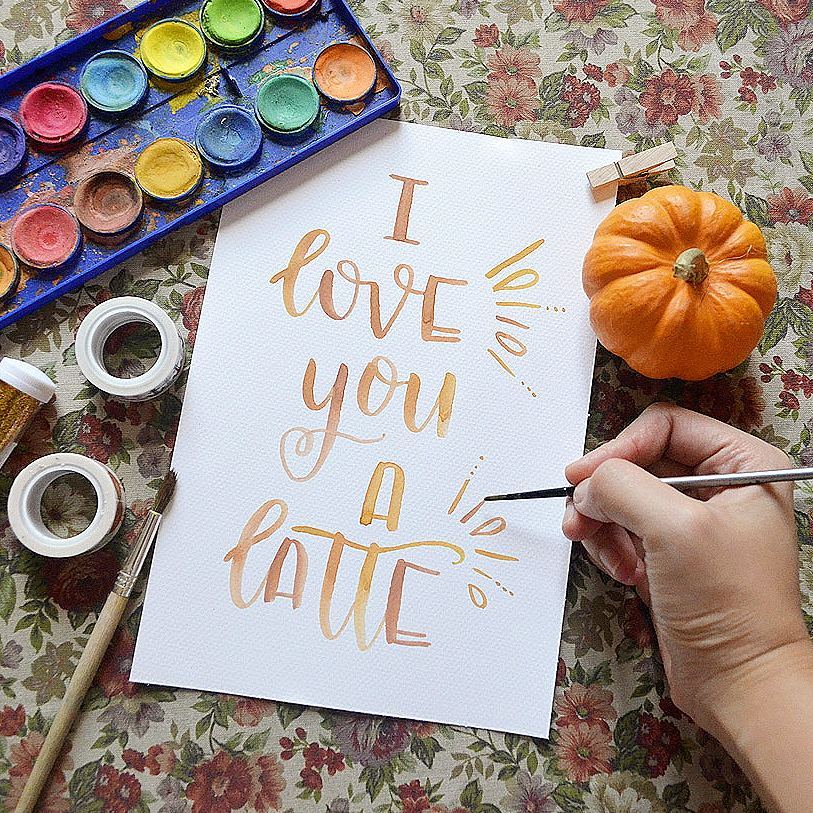 I
love
you
A
latte